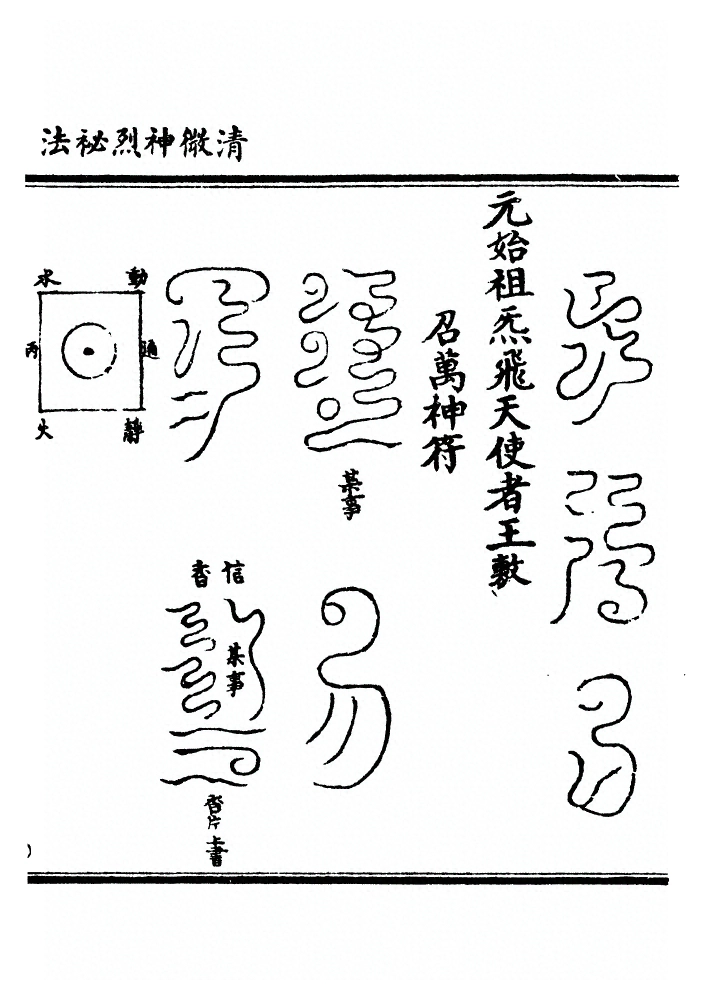 清微神烈祕法
元始祖炁飛天使者王敷
召萬神符
某事
信香
某事
香片上書
動
通
靜
水
丙
火